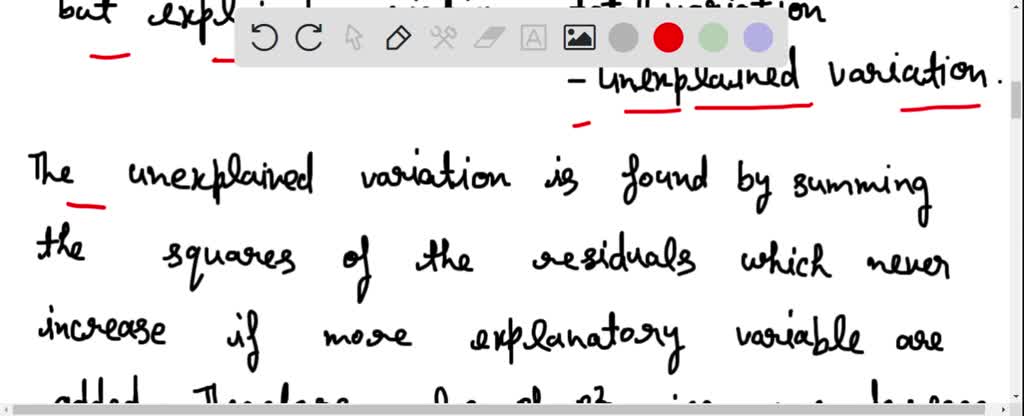 but
variation
- unexplained variation.
The unexplained variation is found by summing
the squares of the residuals which never
increase if more explanatory variable are
added. Therefore